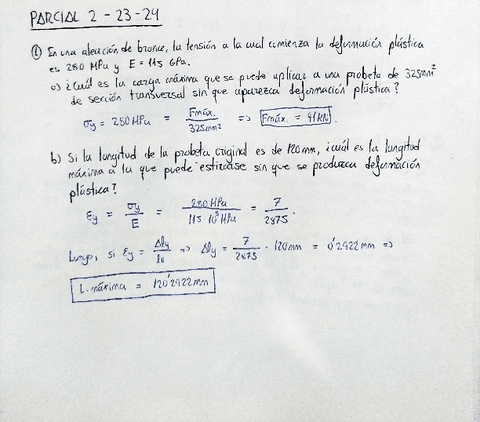 PARCIAL 2 - 23-24
(1) En una aleación de bronce, la tensión a la cual comienza la deformación plástica
es 280 MPa y E = 115 GPa.
a) ¿Cuál es la carga máxima que se puede aplicar a una probeta de 325mm²
de sección transversal sin que aparezca deformación plástica?
σy = 280 MPa = Fmáx. / 325mm² => Fmáx. = 91 kN.
b) Si la longitud de la probeta original es de 120mm, ¿cuál es la longitud
máxima a la que puede estirarse sin que se produzca deformación
plástica?
εy = σy / E = 280 MPa / 115·10³ MPa = 7 / 2875.
Luego, si εy = Δly / l0 => Δly = 7 / 2875 · 120mm = 0'2922mm =>
L. máxima = 120'2922mm